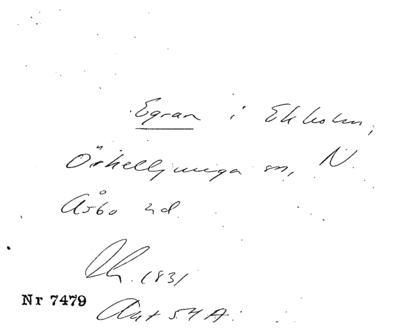 Egran i Ekholm,
Örkelljunga sn, N.
Åsbo hd
1831
Nr 7479
Akt 54A.